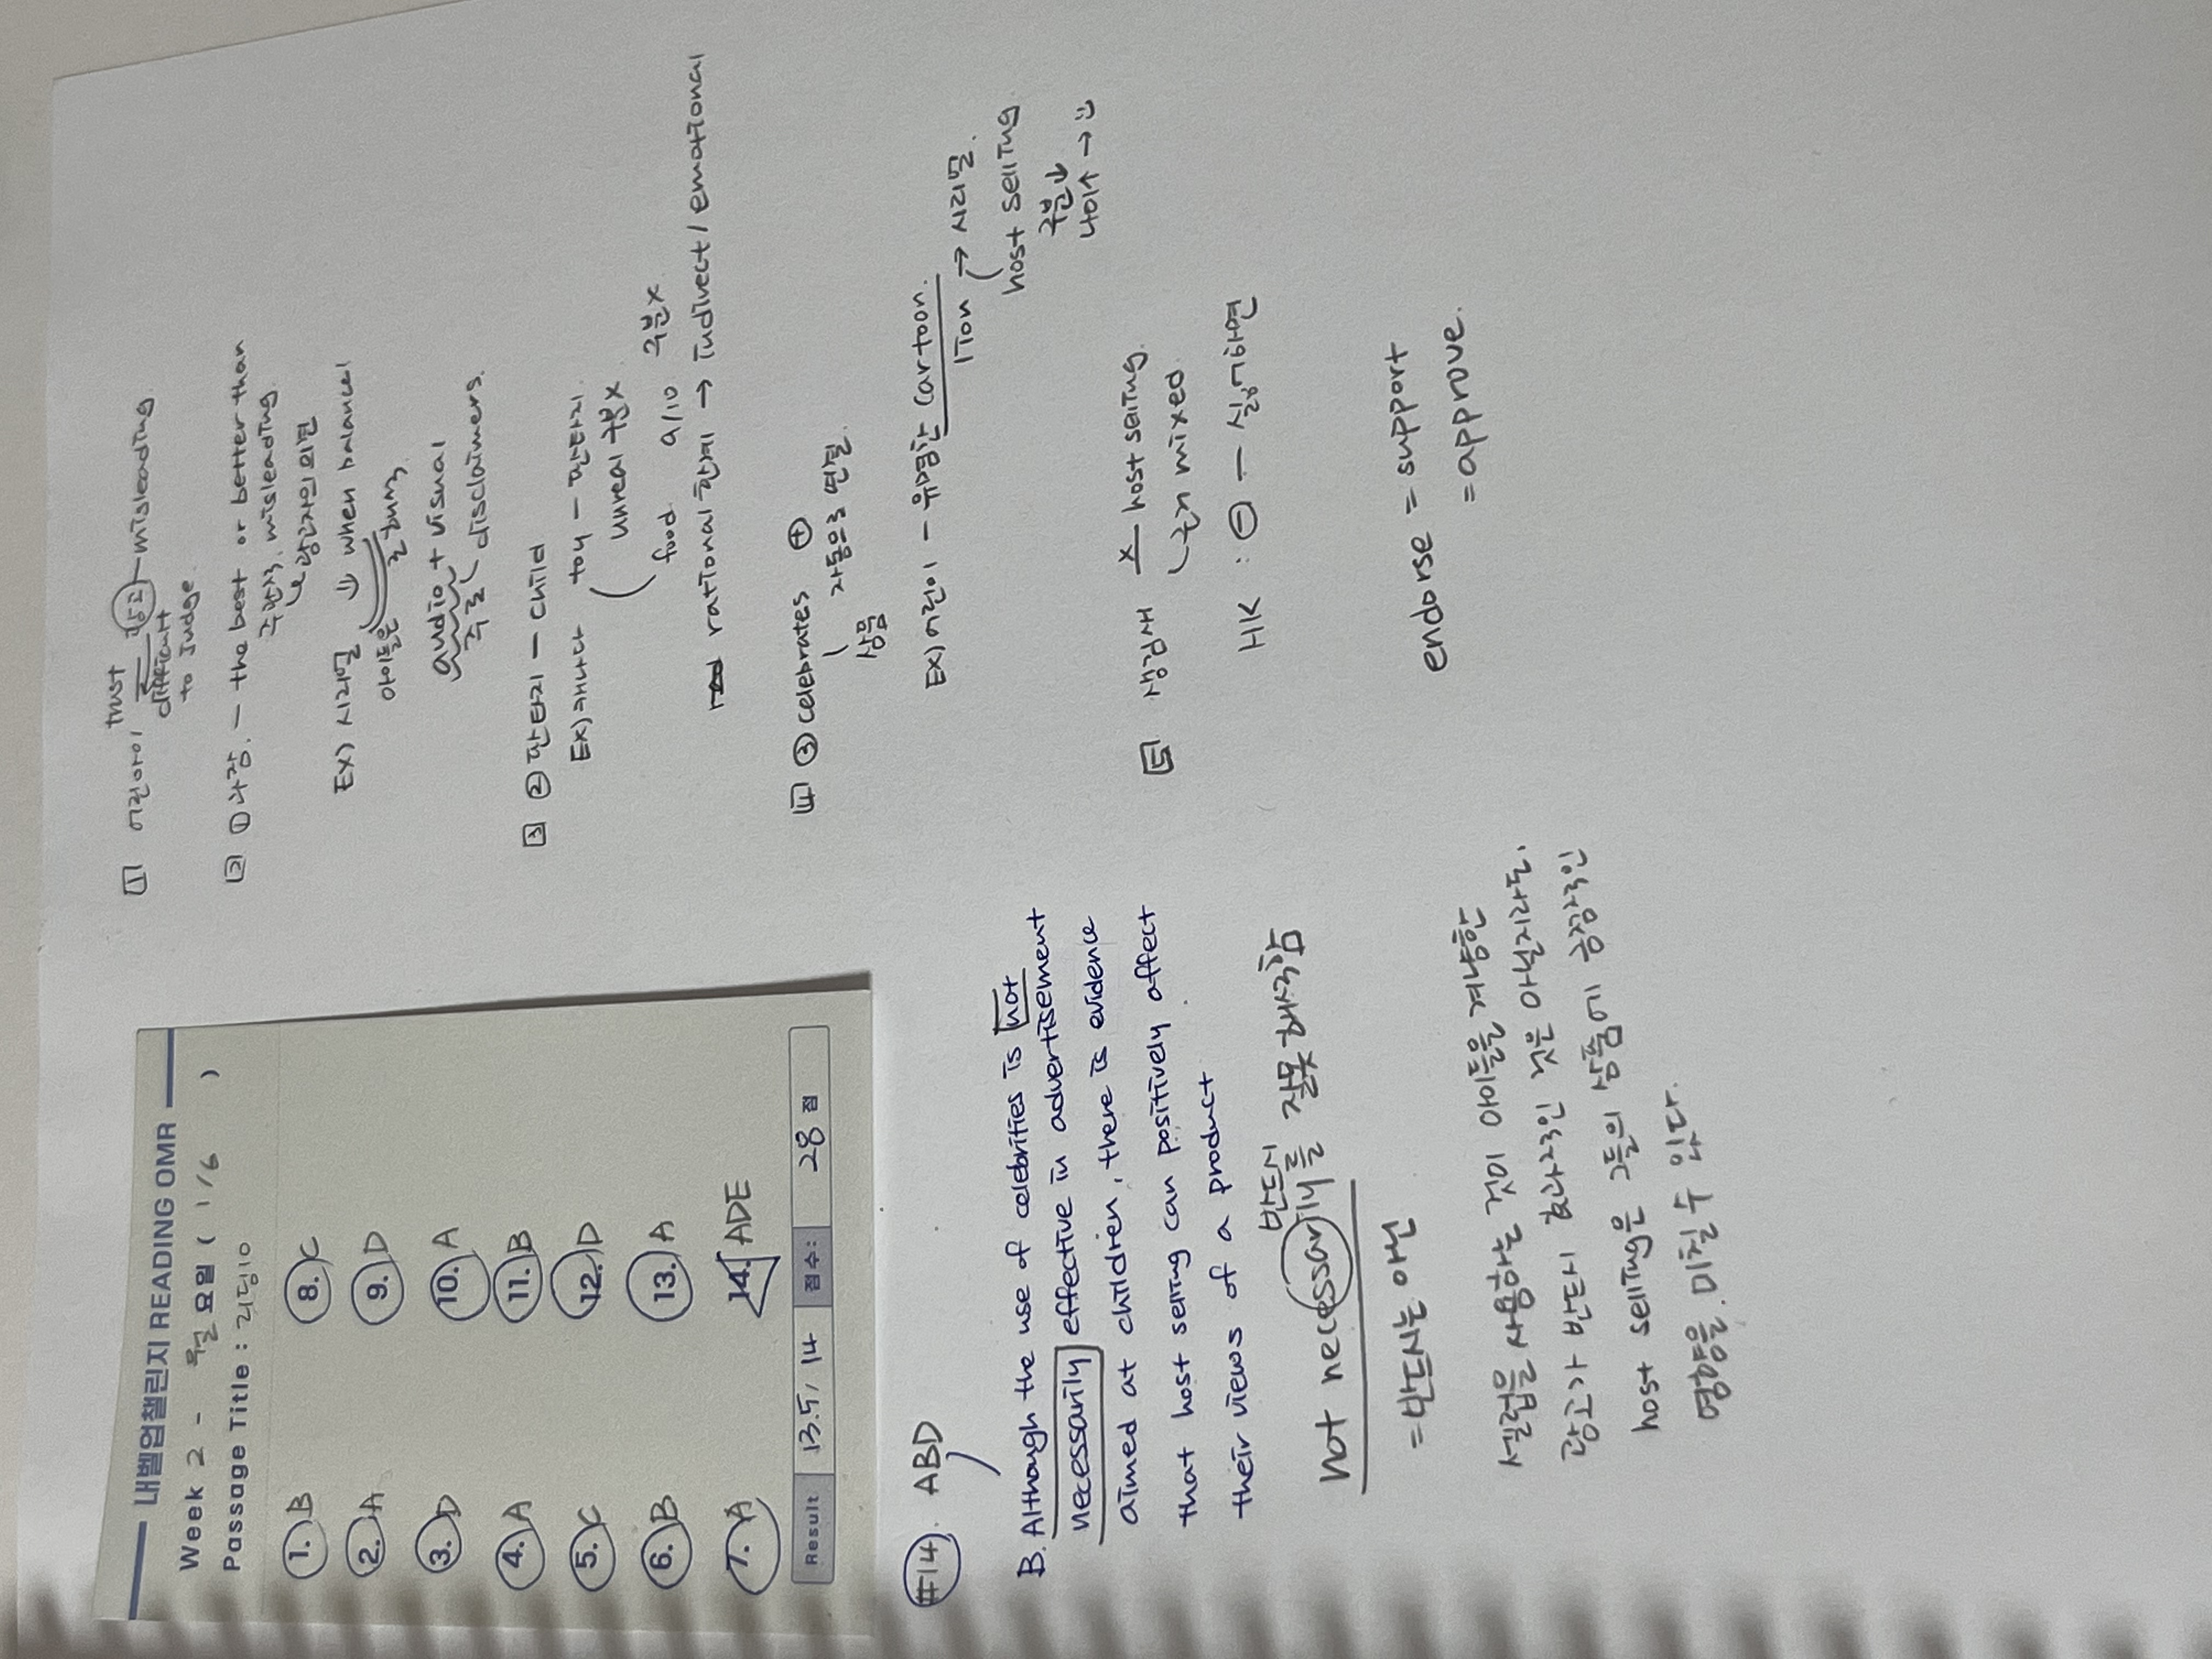 내벨업챌린지 READING OMR
Week 2 - 월 요일 ( 1/6 )
Passage Title : 리딩10
1. B
2. A
3. D
4. A
5. C
6. B
7. A
8. C
9. D
10. A
11. B
12. D
13. A
14. ADE
Result 13.5/14 점수: 28 점
#14) ABD
B. Although the use of celebrities is not
necessarily effective in advertisement
aimed at children, there is evidence
that host selling can positively affect
their views of a product
반드시
not necessarily를 제대로 해석못함
= 반드시는 아닌
셀럽을 사용하는 것이 아이들을 겨냥해
광고가 반드시 효과적인 것은 아닐지라도,
host selling은 그들의 상품에 긍정적인
영향을 미칠 수 있다.
1 어린아이 trust 광고 - misleading
difficult
to Judge.
2 ① 과장. - the best or better than
주관적, misleading
광고자의 의견
EX) 시리얼 ⇒ when balanced
아이들은
audio + visual
주로 disclaimers.
3 ② 판타지 - child
EX) 캐나다 toy - 판타지
unreal 구분x
food 9/10 구분x
rational 한계 → indirect / emotional
4 ③ celebrates ⊕
상품 자동으로 연결
EX) 어린이 - 유명한 cartoon.
lion → 시리얼.
host selling
구분↓
나이↑ →
5 생상새 x host selling.
근거 mixed
HK : ⊖ - 실행하면
endorse = support
= approve.